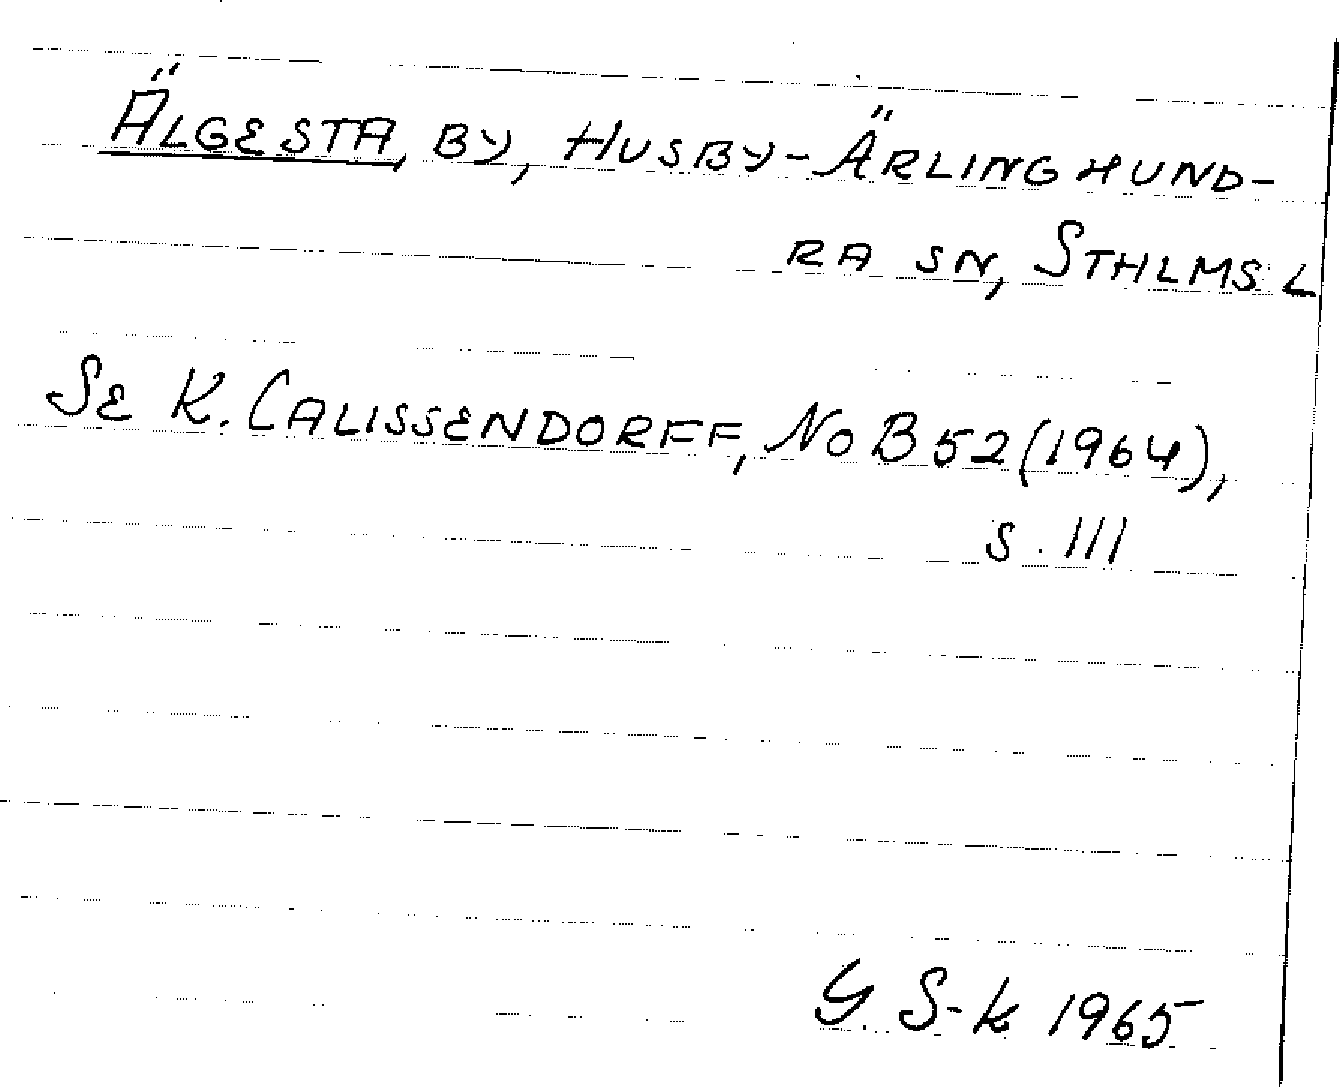 ÄLGESTA, BY, HUSBY-ÄRLINGHUND-
RA SN, STHLMS L
SE K. CALISSENDORFF, NoB 52 (1964),
s. 111
G S-k 1965